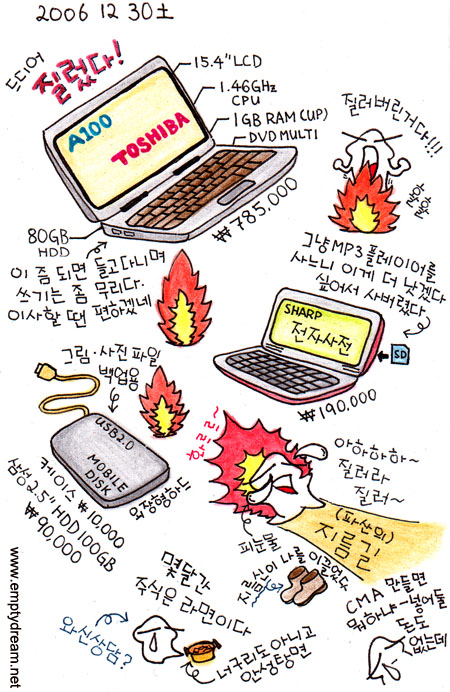 2006 12 30 土
드디어
질렀다!
15.4" LCD
1.46GHz
CPU
1GB RAM(UP)
DVD MULTI
A100
TOSHIBA
80GB
HDD
₩785,000
질러버린거다!!!
이 좀 되면 들고다니며
쓰기는 좀 무리다.
이사할 땐 편하겠네
그냥 MP3 플레이어를
사느니 이게 더 낫겠다
싶어서 사버렸다.
SHARP
전자사전
SD
₩190,000
그림·사진 파일
백업용
USB2.0
MOBILE
DISK
외장형하드
케이스 ₩10,000
삼성 2.5" HDD 100GB
₩90,000
화르르~
아하하하~
질러라
질러~
(파산의)
지름길
피눈물
신이 나를 이끌었다
몇달간
주식은 라면이다
와신상담?
너구리도 아니고
안성탕면
CMA 만들면
뭐하나~ 넣어둘
돈도
없는데
www.emptydream.net